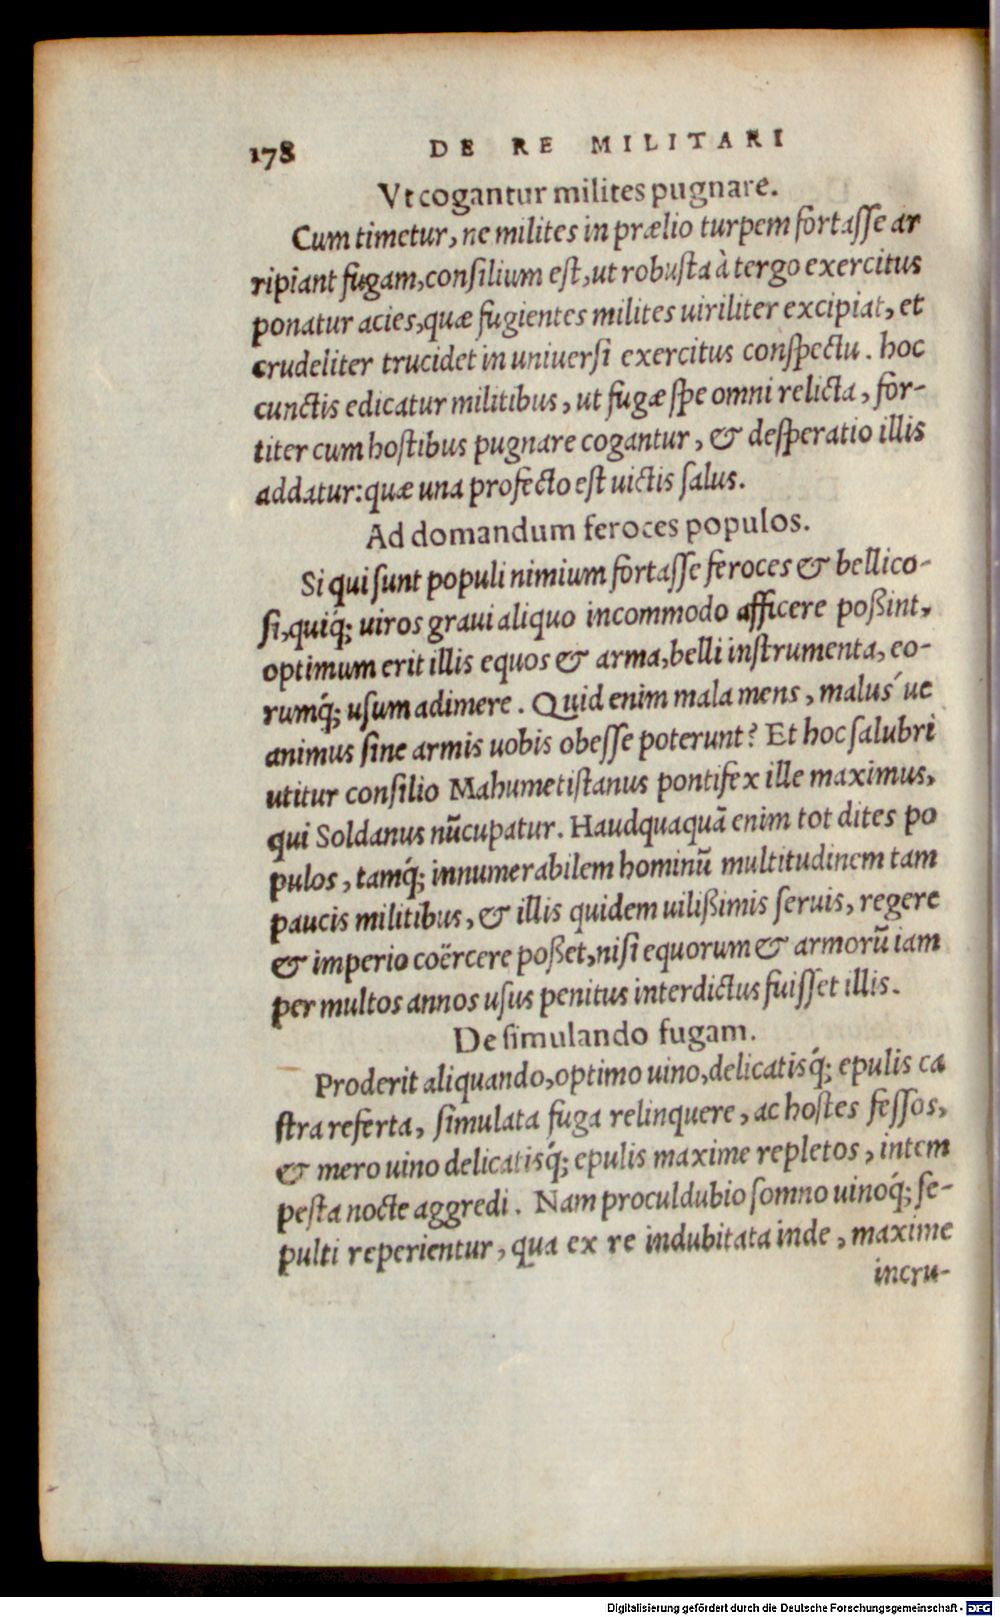 178 DE RE MILITARI
Vt cogantur milites pugnare.
Cum timetur, ne milites in prælio turpem fortaſſe ar
ripiant fugam, conſilium eſt, ut robuſta à tergo exercitus
ponatur acies, quæ fugientes milites uiriliter excipiat, et
crudeliter trucidet in uniuerſi exercitus conſpectu. hoc
cunctis edicatur militibus, ut fugæ ſpe omni relicta, for-
titer cum hoſtibus pugnare cogantur, & deſperatio illis
addatur: quæ una profecto eſt uictis ſalus.
Ad domandum feroces populos.
Si qui ſunt populi nimium fortaſſe feroces & bellico-
ſi, quiq́; uiros graui aliquo incommodo afficere poßint,
optimum erit illis equos & arma, belli inſtrumenta, eo-
rumq́; uſum adimere. Quid enim mala mens, malus´ue
animus ſine armis uobis obeſſe poterunt? Et hoc ſalubri
utitur conſilio Mahumetiſtanus pontifex ille maximus,
qui Soldanus nũcupatur. Haudquaquã enim tot dites po
pulos, tamq́; innumerabilem hominũ multitudinem tam
paucis militibus, & illis quidem uilißimis ſeruis, regere
& imperio coërcere poßet, niſi equorum & armorũ iam
per multos annos uſus penitus interdictus fuiſſet illis.
De ſimulando fugam.
Proderit aliquando, optimo uino, delicatisq́; epulis ca
ſtra referta, ſimulata fuga relinquere, ac hoſtes feſſos,
& mero uino delicatisq́; epulis maxime repletos, intem
peſta nocte aggredi. Nam proculdubio ſomno uinoq́; ſe-
pulti reperientur, qua ex re indubitata inde, maxime
incru-
Digitalisierung gefördert durch die Deutsche Forschungsgemeinschaft - DFG